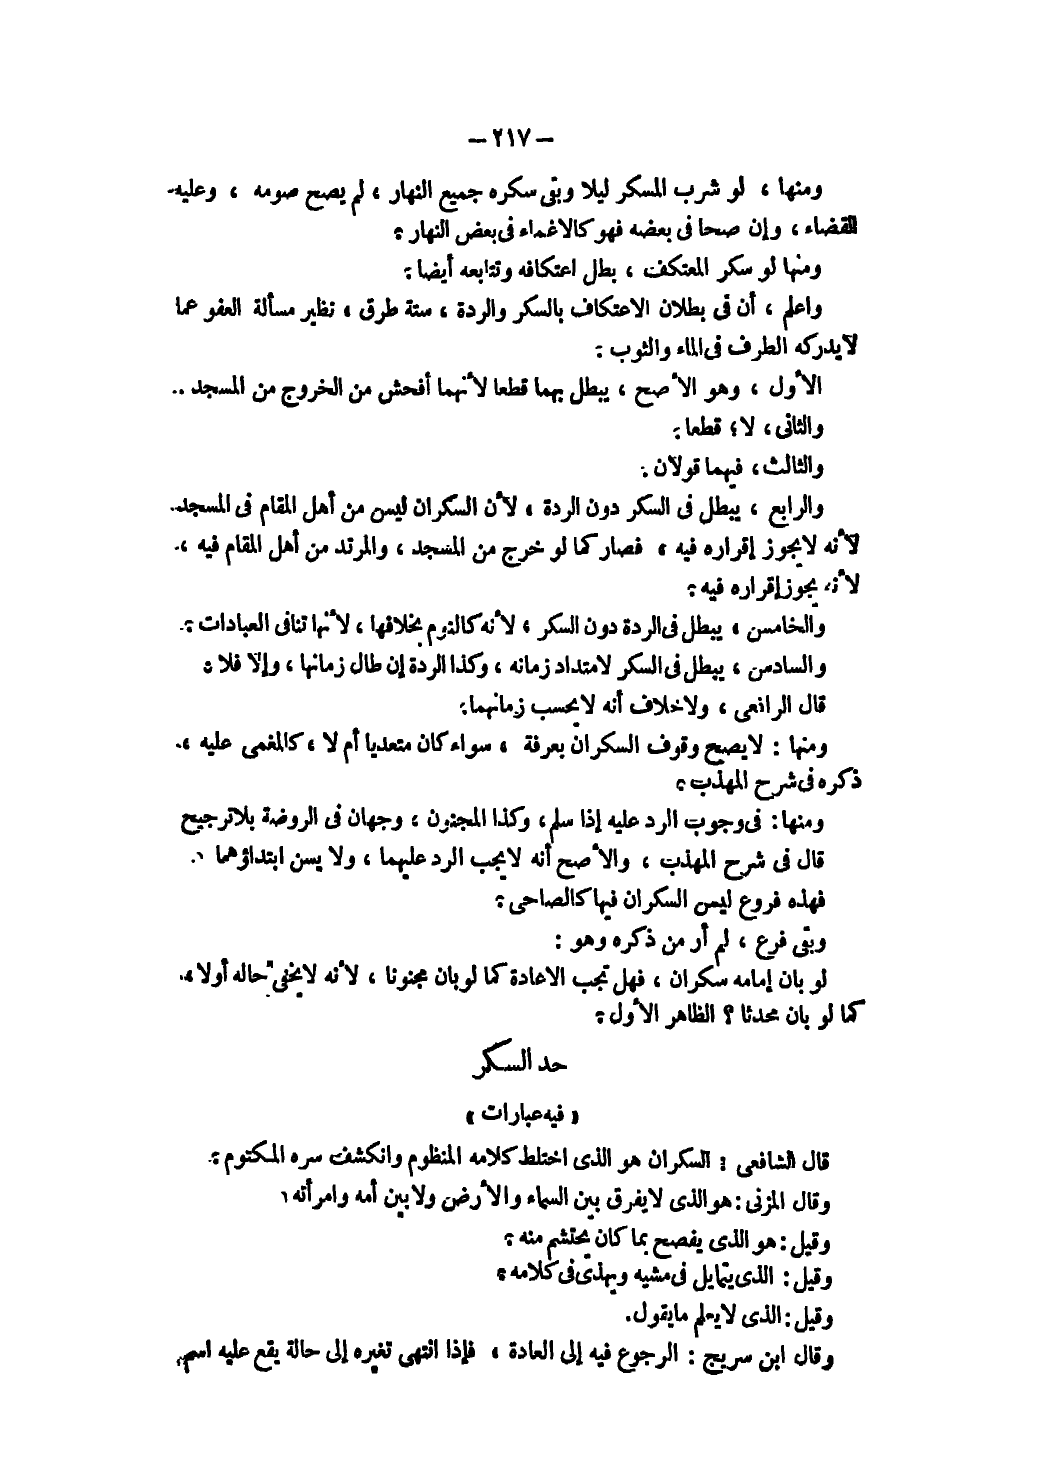 — ٢١٧ —
ومنها ، لو شرب المسكر ليلا وبقى سكره جميع النهار ، لم يصح صومه ، وعليه
القضاء ، وإن صحا فى بعضه فهو كالاغماء فى بعض النهار .
ومنها لو سكر المعتكف ، بطل اعتكافه وتتابعه أيضا .
واعلم ، أن فى بطلان الاعتكاف بالسكر والردة ، ستة طرق ، نظير مسألة العفو عما
لايدركه الطرف فى الماء والثوب .
الأول ، وهو الأصح ، يبطل بهما قطعا لأنهما أفحش من الخروج من المسجد ..
والثانى ، لا ؛ قطعا .
والثالث ، فيهما قولان .
والرابع ، يبطل فى السكر دون الردة ، لأن السكران ليس من أهل المقام فى المسجد
لأنه لايجوز إقراره فيه ، فصار كما لو خرج من المسجد ، والمرتد من أهل المقام فيه ،
لأنه يجوز إقراره فيه .
والخامس ، يبطل فى الردة دون السكر ، لأنه كالنوم بخلافها ، لأنها تنافى العبادات .
والسادس ، يبطل فى السكر لامتداد زمانه ، وكذا الردة إن طال زمانها ، وإلا فلا .
قال الرافعى ، ولاخلاف أنه لايحسب زمانهما .
ومنها : لايصح وقوف السكران بعرفة ، سواء كان متعديا أم لا ، كالمغمى عليه ،
ذكره فى شرح المهذب .
ومنها : فى وجوب الرد عليه إذا سلم ، وكذا المجنون ، وجهان فى الروضة بلاترجيح
قال فى شرح المهذب ، والأصح أنه لايجب الرد عليهما ، ولا يسن ابتداؤهما .
فهذه فروع ليس السكران فيها كالصاحى .
وبقى فرع ، لم أر من ذكره وهو :
لو بان إمامه سكران ، فهل تجب الاعادة كما لو بان مجنونا ، لأنه لايخفى حاله أولا ،
كما لو بان محدثا ؟ الظاهر الأول .
حد السكر
« فيه عبارات »
قال الشافعى : السكران هو الذى اختلط كلامه المنظوم وانكشف سره المكتوم .
وقال المزنى : هو الذى لايفرق بين السماء والأرض ولا بين أمه وامرأته .
وقيل : هو الذى يفصح بما كان يحتشم منه .
وقيل : الذى يتمايل فى مشيه ويهذى فى كلامه .
وقيل : الذى لايعلم مايقول .
وقال ابن سريج : الرجوع فيه إلى العادة ، فإذا انتهى تغيره إلى حالة يقع عليه اسم